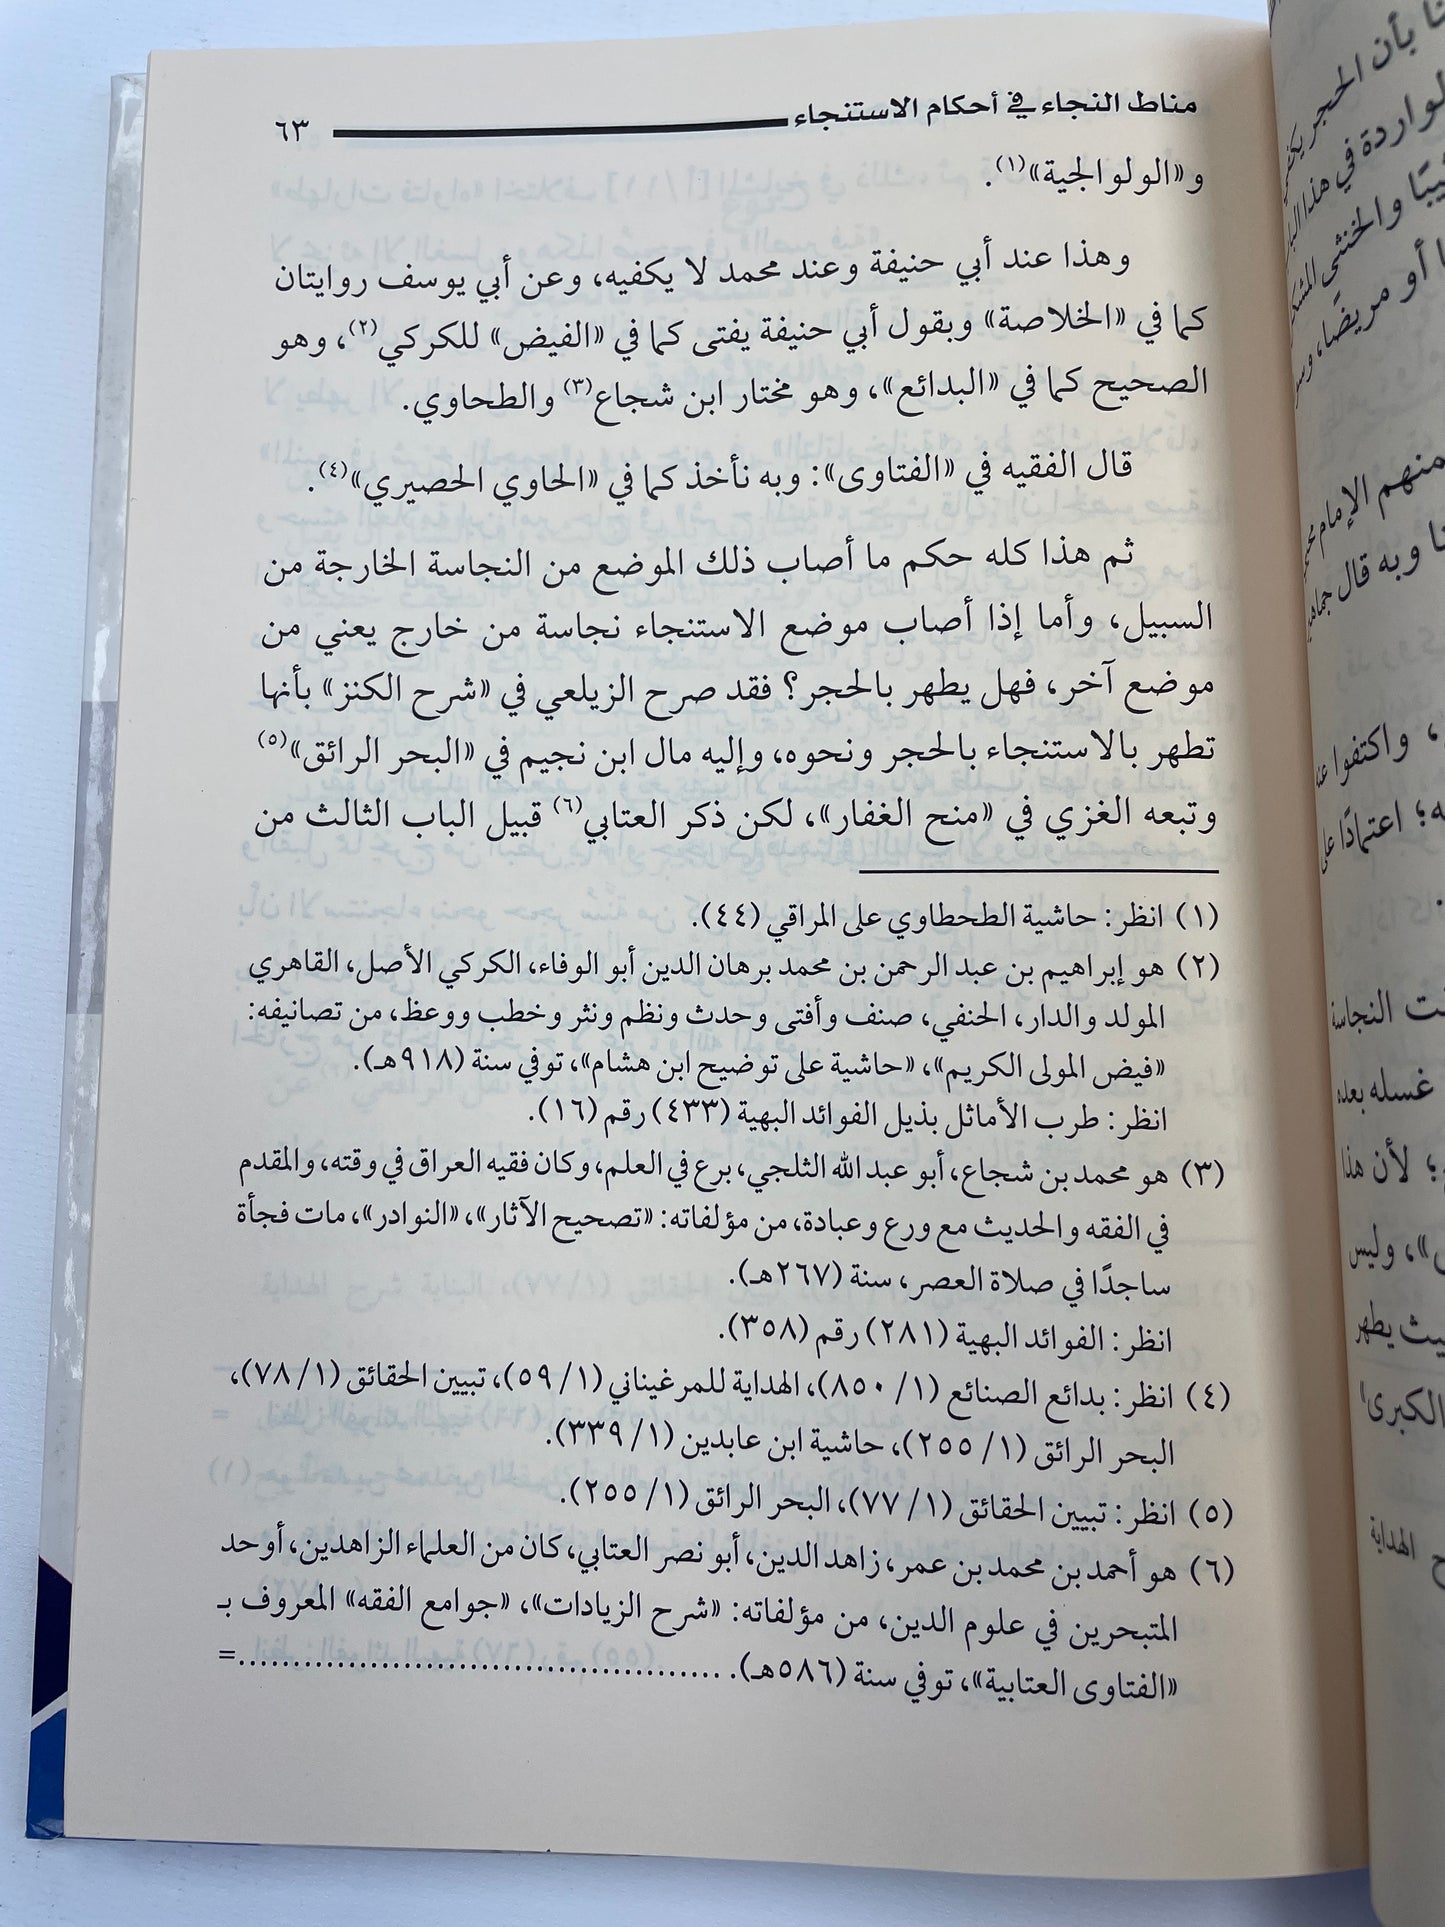 مناط النجاء في أحكام الاستنجاء ٦٣
و«الولوالجية»(١).
وهذا عند أبي حنيفة وعند محمد لا يكفيه، وعن أبي يوسف روايتان
كما في «الخلاصة» وبقول أبي حنيفة يفتى كما في «الفيض» للكركي(٢)، وهو
الصحيح كما في «البدائع»، وهو مختار ابن شجاع(٣) والطحاوي.
قال الفقيه في «الفتاوى»: وبه نأخذ كما في «الحاوي الحصيري»(٤).
ثم هذا كله حكم ما أصاب ذلك الموضع من النجاسة الخارجة من
السبيل، وأما إذا أصاب موضع الاستنجاء نجاسة من خارج يعني من
موضع آخر، فهل يطهر بالحجر؟ فقد صرح الزيلعي في «شرح الكنز» بأنها
تطهر بالاستنجاء بالحجر ونحوه، وإليه مال ابن نجيم في «البحر الرائق»(٥)
وتبعه الغزي في «منح الغفار»، لكن ذكر العتابي(٦) قبيل الباب الثالث من
(١) انظر: حاشية الطحطاوي على المراقي (٤٤).
(٢) هو إبراهيم بن عبد الرحمن بن محمد برهان الدين أبو الوفاء، الكركي الأصل، القاهري
المولد والدار، الحنفي، صنف وأفتى وحدث ونظم ونثر وخطب ووعظ، من تصانيفه:
«فيض المولى الكريم»، «حاشية على توضيح ابن هشام»، توفي سنة (٩١٨هـ).
انظر: طرب الأماثل بذيل الفوائد البهية (٤٣٣) رقم (١٦).
(٣) هو محمد بن شجاع، أبو عبد الله الثلجي، برع في العلم، وكان فقيه العراق في وقته، والمقدم
في الفقه والحديث مع ورع وعبادة، من مؤلفاته: «تصحيح الآثار»، «النوادر»، مات فجأة
ساجدًا في صلاة العصر، سنة (٢٦٧هـ).
انظر: الفوائد البهية (٢٨١) رقم (٣٥٨).
(٤) انظر: بدائع الصنائع (١/ ٨٥٠)، الهداية للمرغيناني (١/ ٥٩)، تبيين الحقائق (١/ ٧٨)،
البحر الرائق (١/ ٢٥٥)، حاشية ابن عابدين (١/ ٣٣٩).
(٥) انظر: تبيين الحقائق (١/ ٧٧)، البحر الرائق (١/ ٢٥٥).
(٦) هو أحمد بن محمد بن عمر، زاهد الدين، أبو نصر العتابي، كان من العلماء الزاهدين، أوحد
المتبحرين في علوم الدين، من مؤلفاته: «شرح الزيادات»، «جوامع الفقه» المعروف بـ
«الفتاوى العتابية»، توفي سنة (٥٨٦هـ). ..............................................=
بأن الحجر
الواردة في هذا
والخنثى
أو مريضًا،
منهم الإمام
وبه قال
، واكتفوا
؛ اعتمادًا على
النجاسة
غسله بعده
؛ لأن هذا
، وليس
يطهر
الكبرى
الهداية